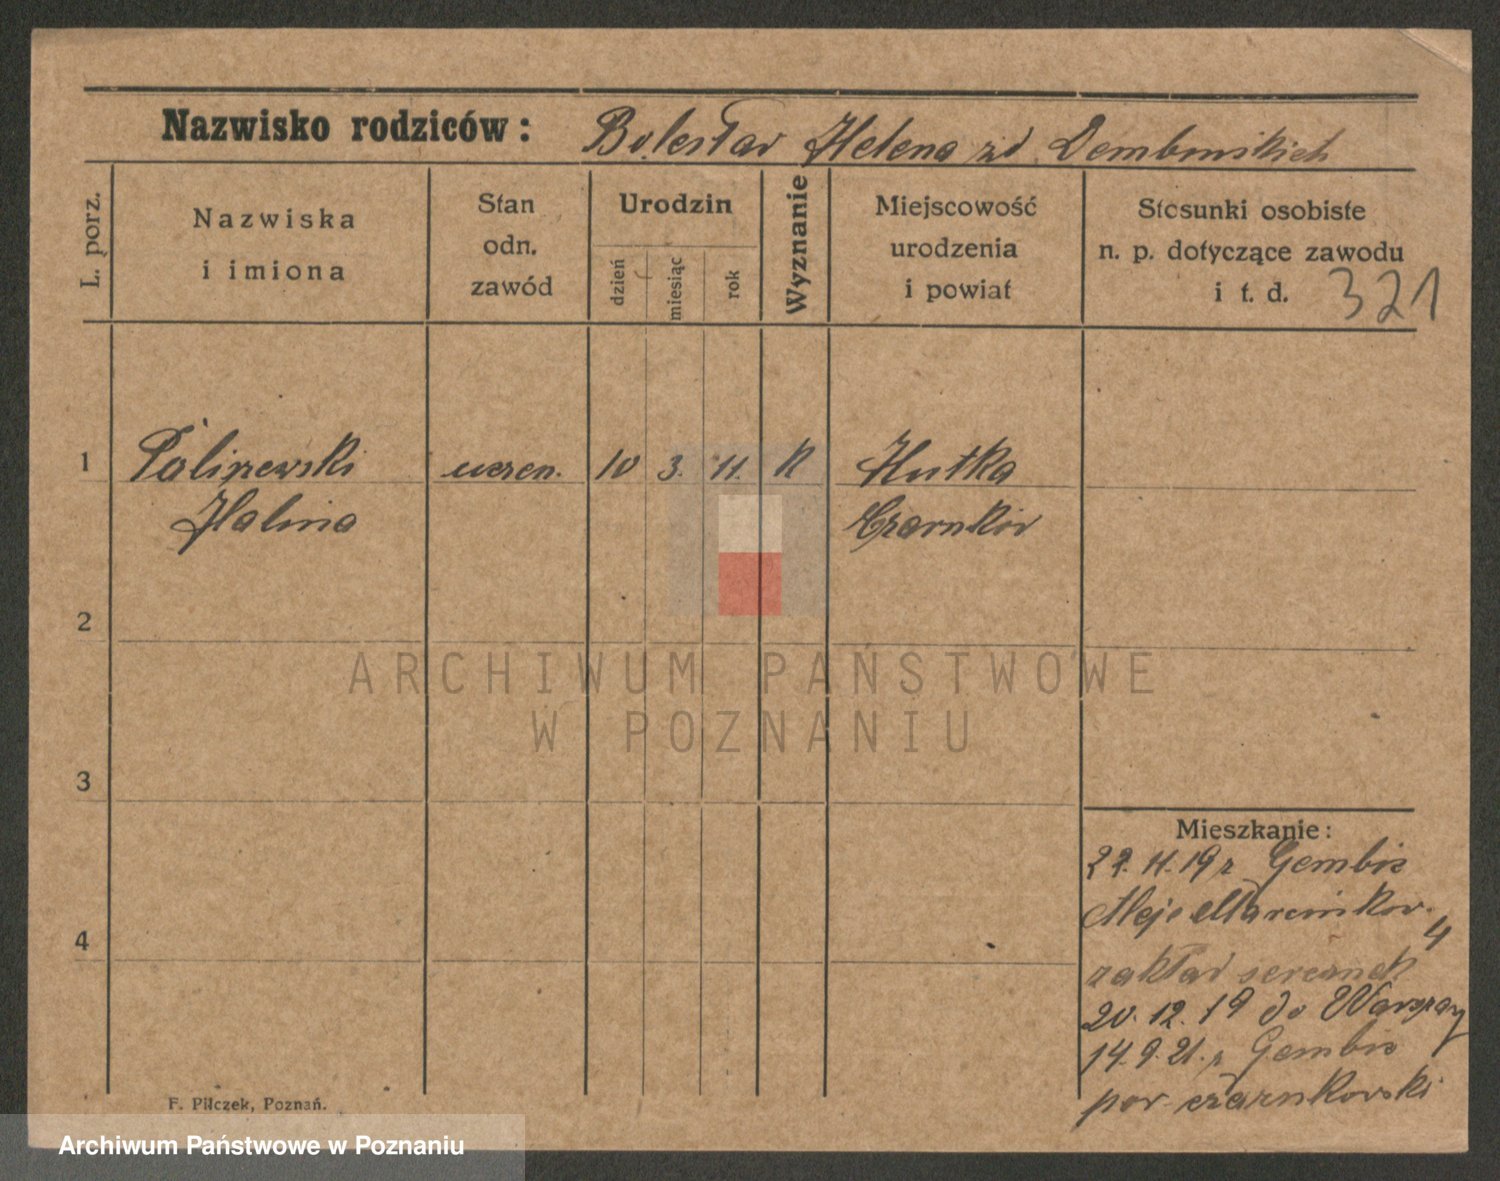 Nazwisko rodziców: Bolesław Helena zd Dembinskich
L. porz.
Nazwiska
i imiona
Stan
odn.
zawód
Urodzin
dzień
miesiąc
rok
Wyznanie
Miejscowość
urodzenia
i powiat
Stosunki osobiste
n. p. dotyczące zawodu
i t. d.
321
1
uczen. 10 3. 11. K Hutka
Halina Czarnków
2
ARCHIWUM PAŃSTWOWE
W POZNANIU
3
Mieszkanie:
22. 11. 19 r Gembic
Aleje Marcinkow.
4
zakład
20. 12. 19 do Warszawy
14. 9. 21. r Gembic
pow czarnkowski
4
F. Pilczek, Poznań.
Archiwum Państwowe w Poznaniu